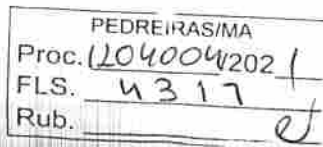 PEDREIRAS/MA
Proc. 1204004/202 1
FLS. 4317
Rub.